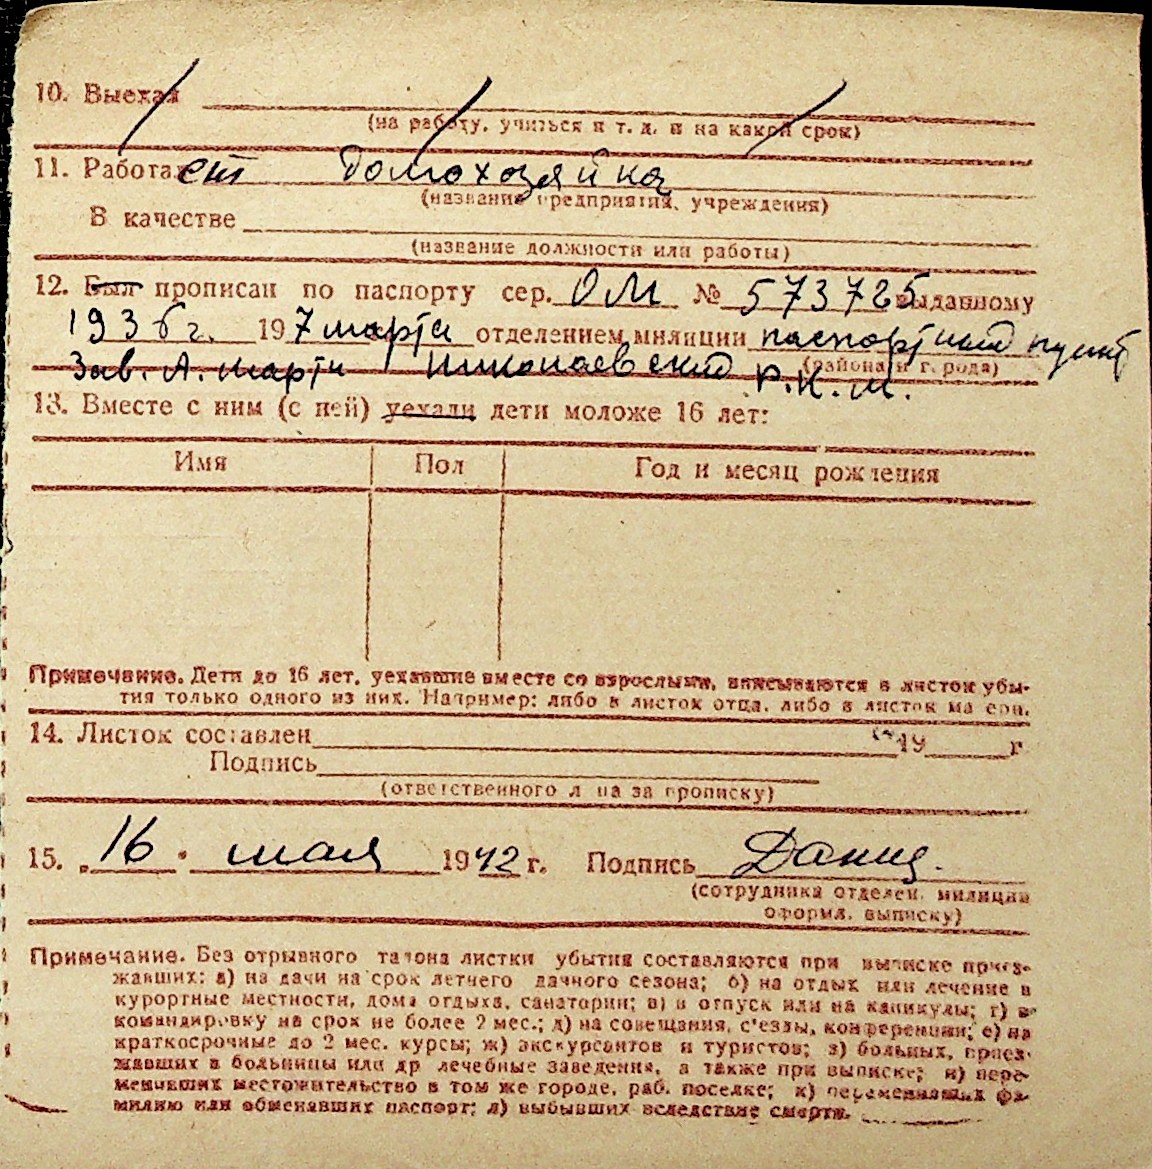 10. Выехал
(на работу, учиться и т. д. и на какой срок)
11. Работает домохозяйка
(название предприятия, учреждения)
В качестве
(название должности или работы)
12. Был прописан по паспорту сер. ОМ № 573725 выданному
1936г. 197 марта отделением милиции паспортный пункт
(района и города)
Зав. А. Марти Николаевский Р.К.М.
13. Вместе с ним (с ней) уехали дети моложе 16 лет:
Имя Пол Год и месяц рождения
Примечание. Дети до 16 лет, уехавшие вместе со взрослыми, вписываются в листок убы-
тия только одного из них. Например: либо в листок отца, либо в листок матери.
14. Листок составлен 19 г
Подпись
(ответственного лица за прописку)
15. „16" мая 1942 г. Подпись
(сотрудника отделен. милиции
оформл. выписку)
Примечание. Без отрывного талона листки убытия составляются при выписке приез-
жавших: а) на дачи на срок летнего дачного сезона; б) на отдых или лечение в
курортные местности, дома отдыха, санатории; в) в отпуск или на каникулы; г) в
командировку на срок не более 2 мес.; д) на совещания, с'езды, конференции; е) на
краткосрочные до 2 мес. курсы; ж) экскурсантов и туристов; з) больных, приез-
жавших в больницы или др лечебные заведения, а также при выписке; и) пере-
менивших местожительство в том же городе, раб. поселке; к) переменивших фа-
милию или обменявших паспорт; л) выбывших вследствие смерти.